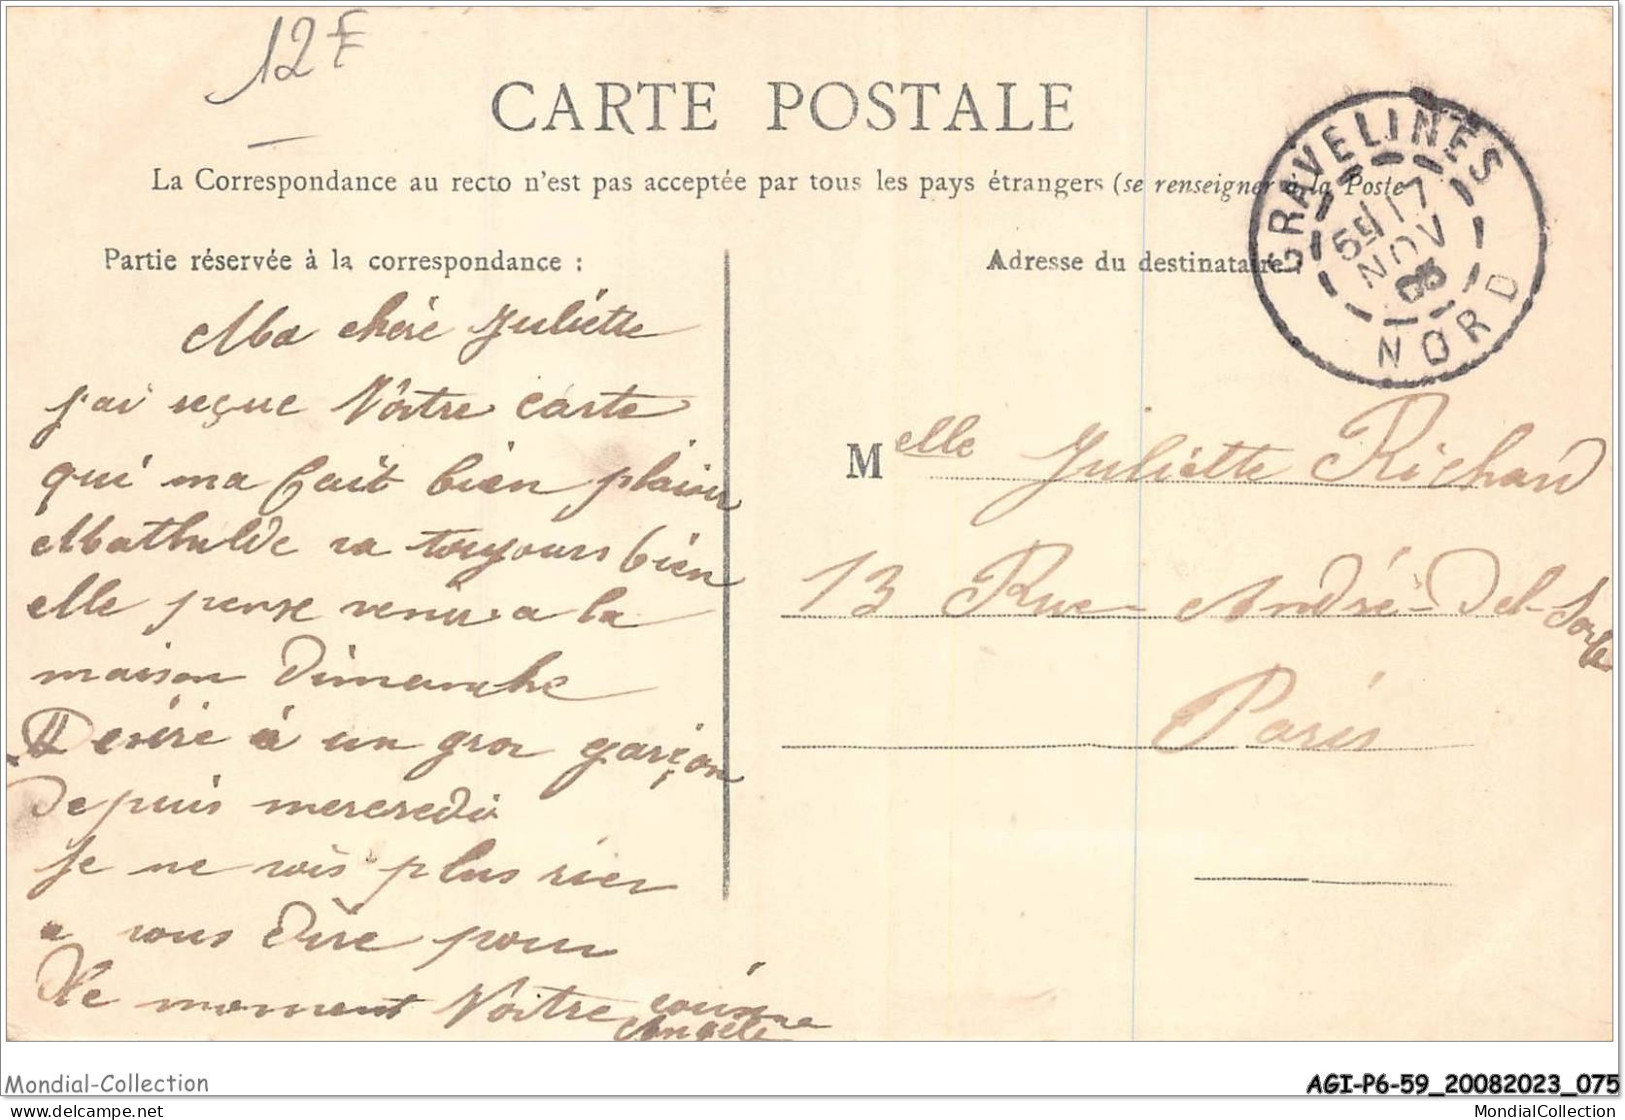 12F
CARTE POSTALE
La Correspondance au recto n'est pas acceptée par tous les pays étrangers (se renseigner à la Poste
Partie réservée à la correspondance :
Adresse du destinataire
GRAVELINES
17
NOV
NORD
Ma chére Juliétte
j'ai reçue Vôtre carte
qui ma fait bien plaisir
Mathilde va toujours bien
elle pense venir a la
maison Dimanche
Desiré à un gros garçon
depuis mercredi
je ne vois plus rien
a vous dire pour
le moment Vôtre cousine
Angèle
Melle Juliette Richard
13 Rue André-Del-Sarte
Paris
Mondial-Collection
AGI-P6-59_20082023_075
https://www.delcampe.net
MondialCollection